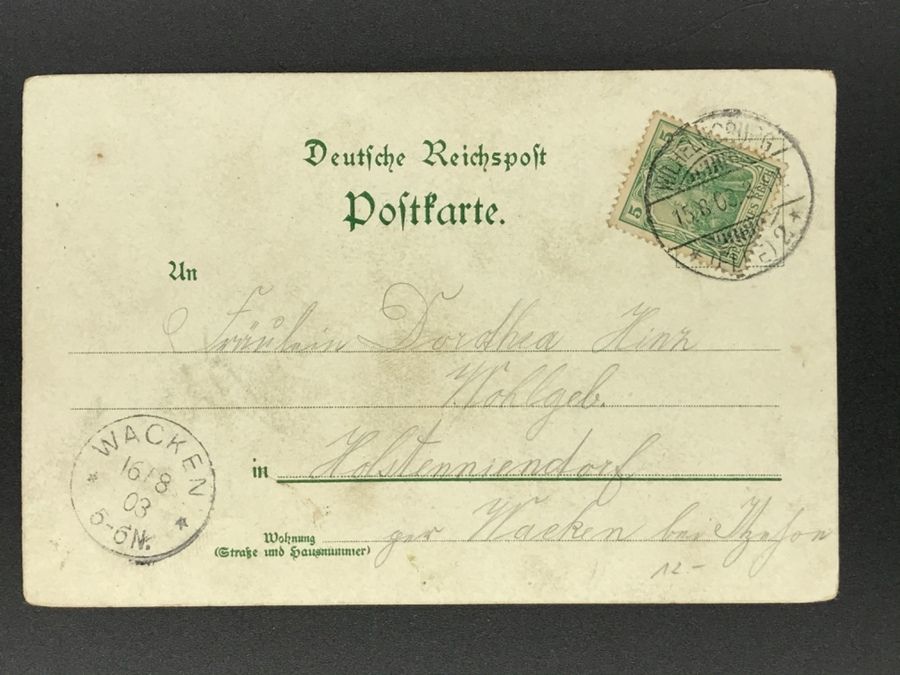 Deutsche Reichspost
Postkarte.
5
5
15.8.03
2
An
Fräulein Dorothea Hinz
Wohlgeb.
in Holstenniendorf
Wohnung
(Straße und Hausnummer)
per Wacken bei Itzehoe
12-
WACKEN
16/8
03
5-6N.